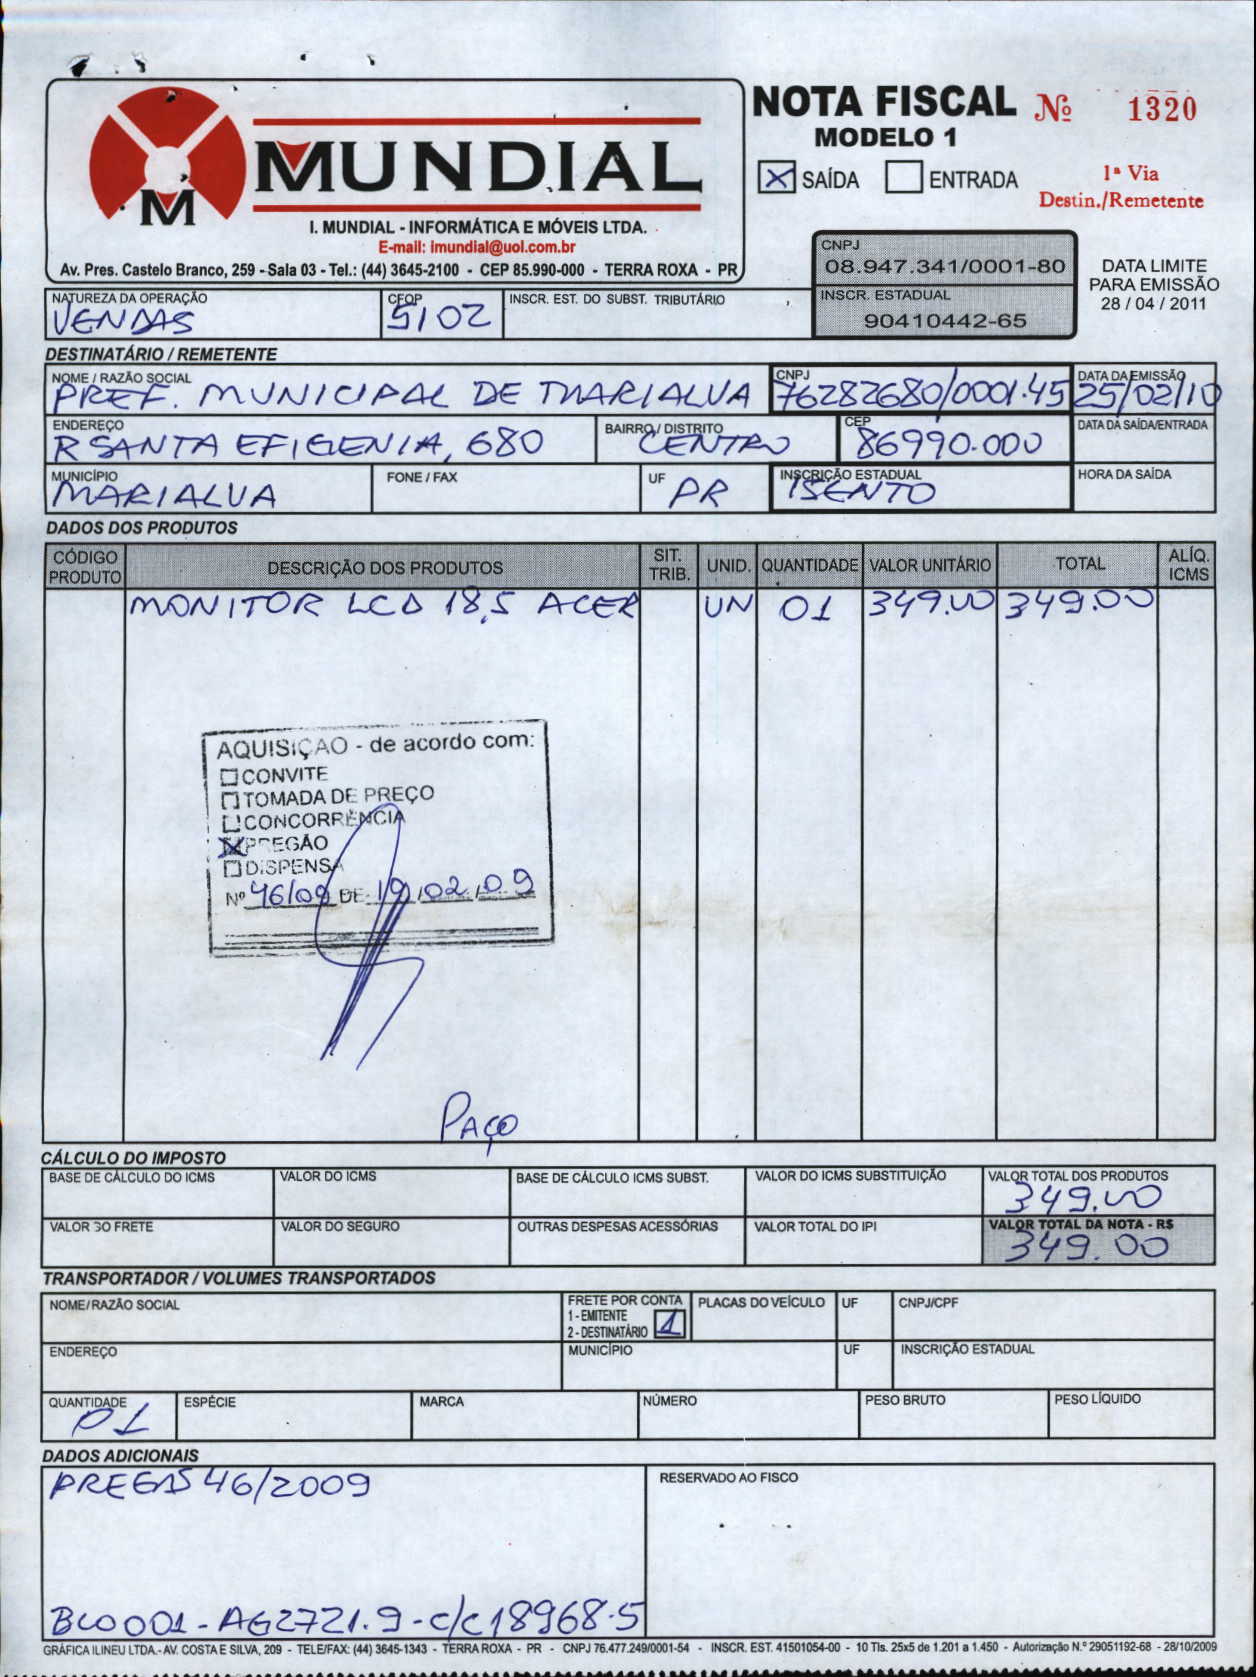 MUNDIAL
M
I. MUNDIAL - INFORMÁTICA E MÓVEIS LTDA.
E-mail: imundial@uol.com.br
Av. Pres. Castelo Branco, 259 - Sala 03 - Tel.: (44) 3645-2100 - CEP 85.990-000 - TERRA ROXA - PR
NOTA FISCAL Nº 1320
MODELO 1
X SAÍDA ENTRADA
1ª Via
Destin./Remetente
CNPJ
08.947.341/0001-80
INSCR. ESTADUAL
90410442-65
DATA LIMITE
PARA EMISSÃO
28 / 04 / 2011
NATUREZA DA OPERAÇÃO CFOP INSCR. EST. DO SUBST. TRIBUTÁRIO
VENDAS 5102
DESTINATÁRIO / REMETENTE
NOME / RAZÃO SOCIAL CNPJ DATA DA EMISSÃO
PREF. MUNICIPAL DE MARIALVA 76282680/0001.45 25/02/10
ENDEREÇO BAIRRO / DISTRITO CEP DATA DA SAÍDA/ENTRADA
R SANTA EFIGENIA, 680 CENTRO 86990.000
MUNICÍPIO FONE / FAX UF INSCRIÇÃO ESTADUAL HORA DA SAÍDA
MARIALVA PR ISENTO
DADOS DOS PRODUTOS
CÓDIGO PRODUTO DESCRIÇÃO DOS PRODUTOS SIT. TRIB. UNID. QUANTIDADE VALOR UNITÁRIO TOTAL ALÍQ. ICMS
MONITOR LCD 18,5 ACER UN 01 349.00 349.00
AQUISIÇÃO - de acordo com:
CONVITE
TOMADA DE PREÇO
CONCORRÊNCIA
X PREGÃO
DISPENSA
Nº 46/09 DE 19/02/09
PAÇO
CÁLCULO DO IMPOSTO
BASE DE CÁLCULO DO ICMS VALOR DO ICMS BASE DE CÁLCULO ICMS SUBST. VALOR DO ICMS SUBSTITUIÇÃO VALOR TOTAL DOS PRODUTOS
349.00
VALOR DO FRETE VALOR DO SEGURO OUTRAS DESPESAS ACESSÓRIAS VALOR TOTAL DO IPI VALOR TOTAL DA NOTA - R$
349.00
TRANSPORTADOR / VOLUMES TRANSPORTADOS
NOME/RAZÃO SOCIAL FRETE POR CONTA PLACAS DO VEÍCULO UF CNPJ/CPF
1 - EMITENTE
2 - DESTINATÁRIO 1
ENDEREÇO MUNICÍPIO UF INSCRIÇÃO ESTADUAL
QUANTIDADE ESPÉCIE MARCA NÚMERO PESO BRUTO PESO LÍQUIDO
01
DADOS ADICIONAIS
PREGÃO 46/2009
RESERVADO AO FISCO
BCO 001 - AG 2721.9 - c/c 18968.5
GRÁFICA ILINEU LTDA.- AV. COSTA E SILVA, 209 - TELE/FAX: (44) 3645-1343 - TERRA ROXA - PR - CNPJ 76.477.249/0001-54 - INSCR. EST. 41501054-00 - 10 Tls. 25x5 de 1.201 a 1.450 - Autorização N.º 29051192-68 - 28/10/2009